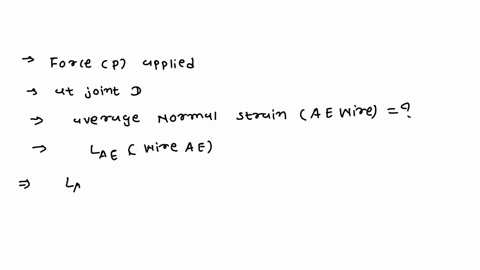 → Force (P) applied
→ at joint D
→ average Normal strain (AE wire) = ?
→ LAE (wire AE)
⇒ LA